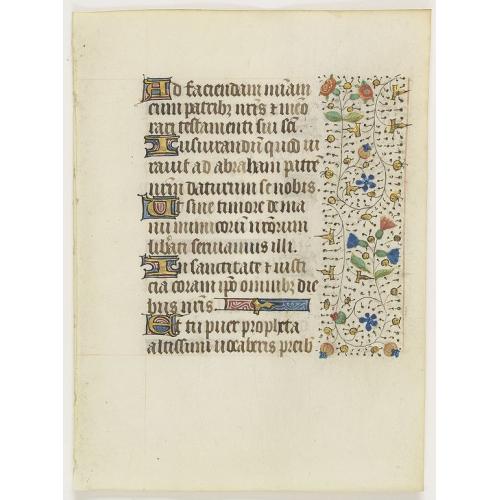 Ad faciendam miam
cum patribz nris & mem
rari testamenti sui sci.
Iusiurandum quod iu
ravit ad abraham patre
nrm daturum se nobis.
Ut sine timore de ma
nu inimicorum nrorum
libati serviamus illi.
In sanctitate & iusti
cia coram ipo omnibz die
bus nris
Et tu puer propheta
altissimi vocaberis preib